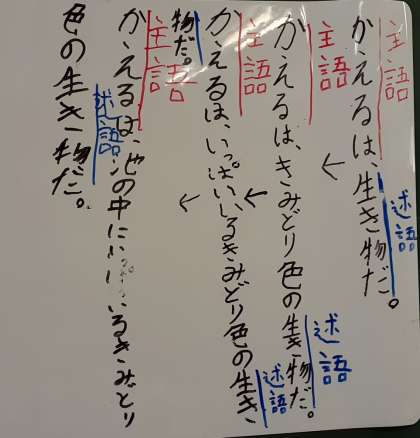 主語
かえるは、生き物だ。
述語
主語
かえるは、きみどり色の生き物だ。
述語
主語
かえるは、いっぱいいるきみどり色の生き
物だ。
述語
主語
かえるは、池の中にいっぱいいるきみどり
色の生き物だ。
述語